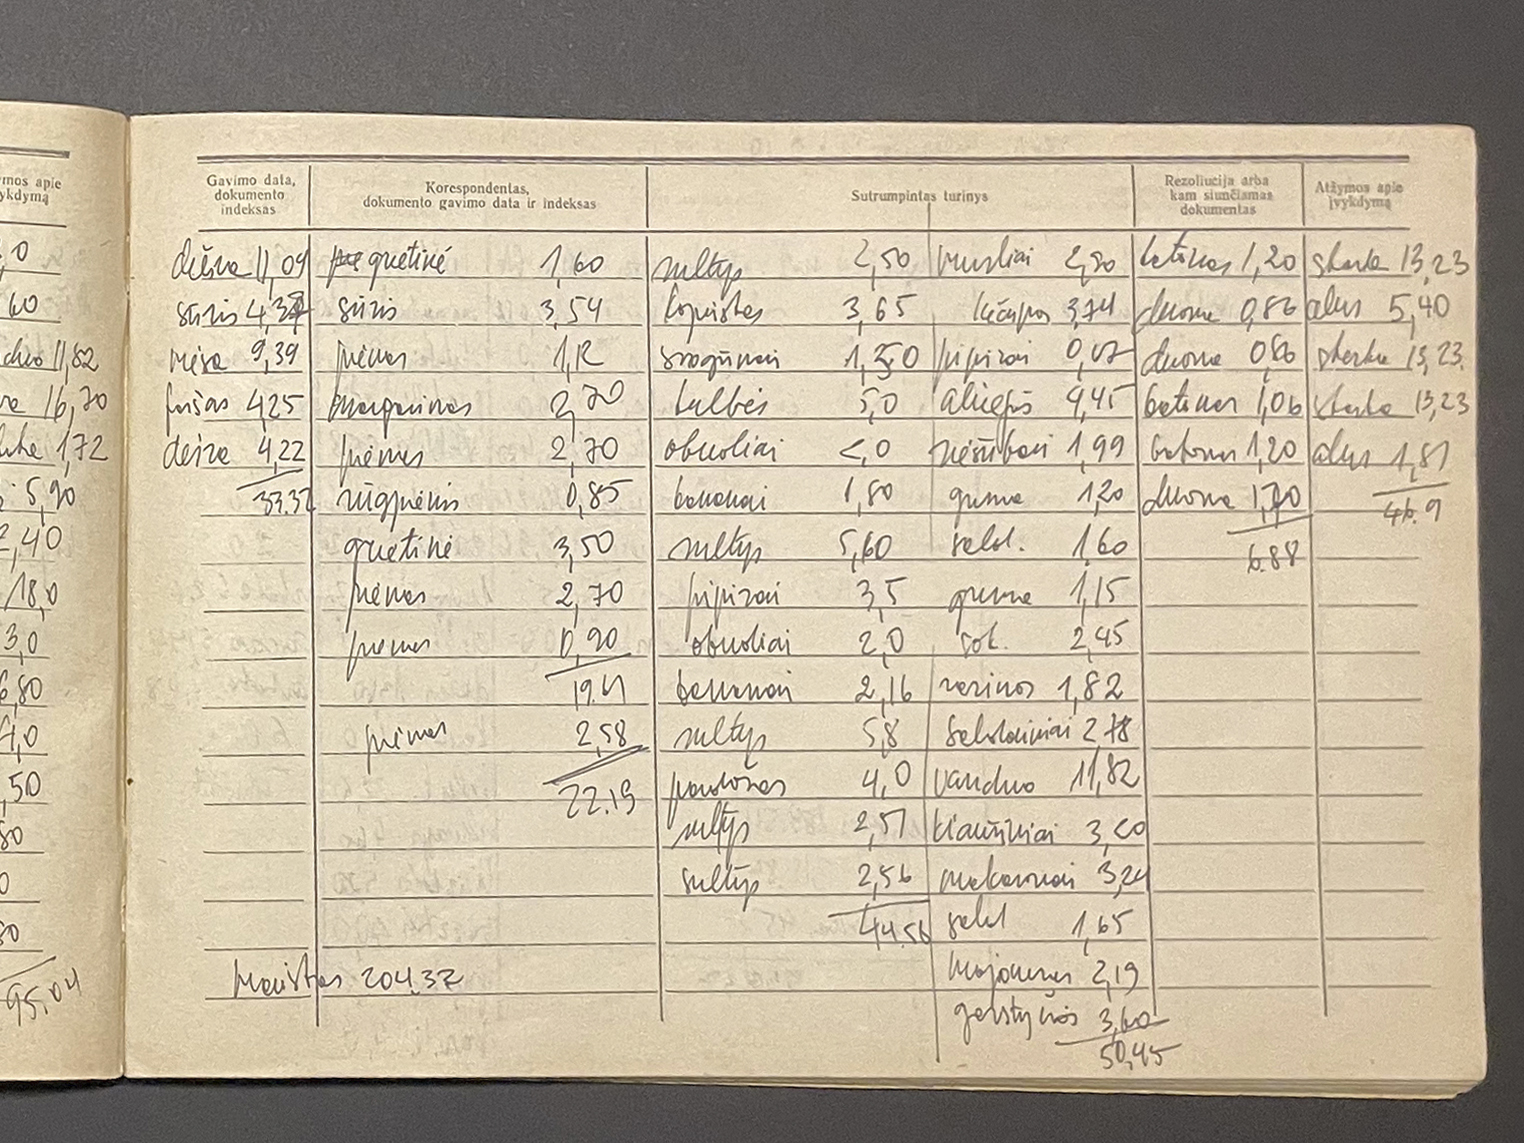 mos apie
ykdymą
,0
60
11,82
16,70
1,72
5,90
2,40
18,0
3,0
6,80
4,0
,50
80
0
80
95.04
Gavimo data,
dokumento
indeksas
Korespondentas,
dokumento gavimo data ir indeksas
Sutrumpintas turinys
Rezoliucija arba
kam siunčiamas
dokumentas
Atžymos apie
įvykdymą
dešra 11,09
sūris
mėsa 9,39
faršas 4,25
dešra 4,22
33.32
grietinė 1,60
sūris 3,54
pienas 1,12
margarinas 2,70
pienas 2,70
rūgpienis 0,85
grietinė 3,50
pienas 2,70
pienas 0,90
19.61
pienas 2,58
22.19
Maistas 204.37
sultys 2,50
kopūstas 3,65
svogūnai 1,50
bulvės 5,0
obuoliai 2,0
bananai 1,80
sultys 5,60
pipirai 3,5
obuoliai 2,0
bananai 2,16
sultys 5,8
4,0
sultys 2,51
sultys 2,56
44.56
musliai 2,90
kečupas 3,74
pipirai 0,07
aliejus 4,45
riešutai 1,99
guma 1,20
šokol. 1,60
guma 1,15
šok. 2,45
razinos 1,82
šokoladiniai 2,78
vanduo 11,82
kiaušiniai 3,20
makaronai 3,24
šokol 1,65
majonezas 2,19
garstyčios 3,60
50,45
batonas 1,20
duona 0,86
duona 0,86
batonas 1,06
batonas 1,20
duona 1,70
6.88
starka 13,23
alus 5,40
starka 13,23
starka 13,23
alus 1,81
46.9